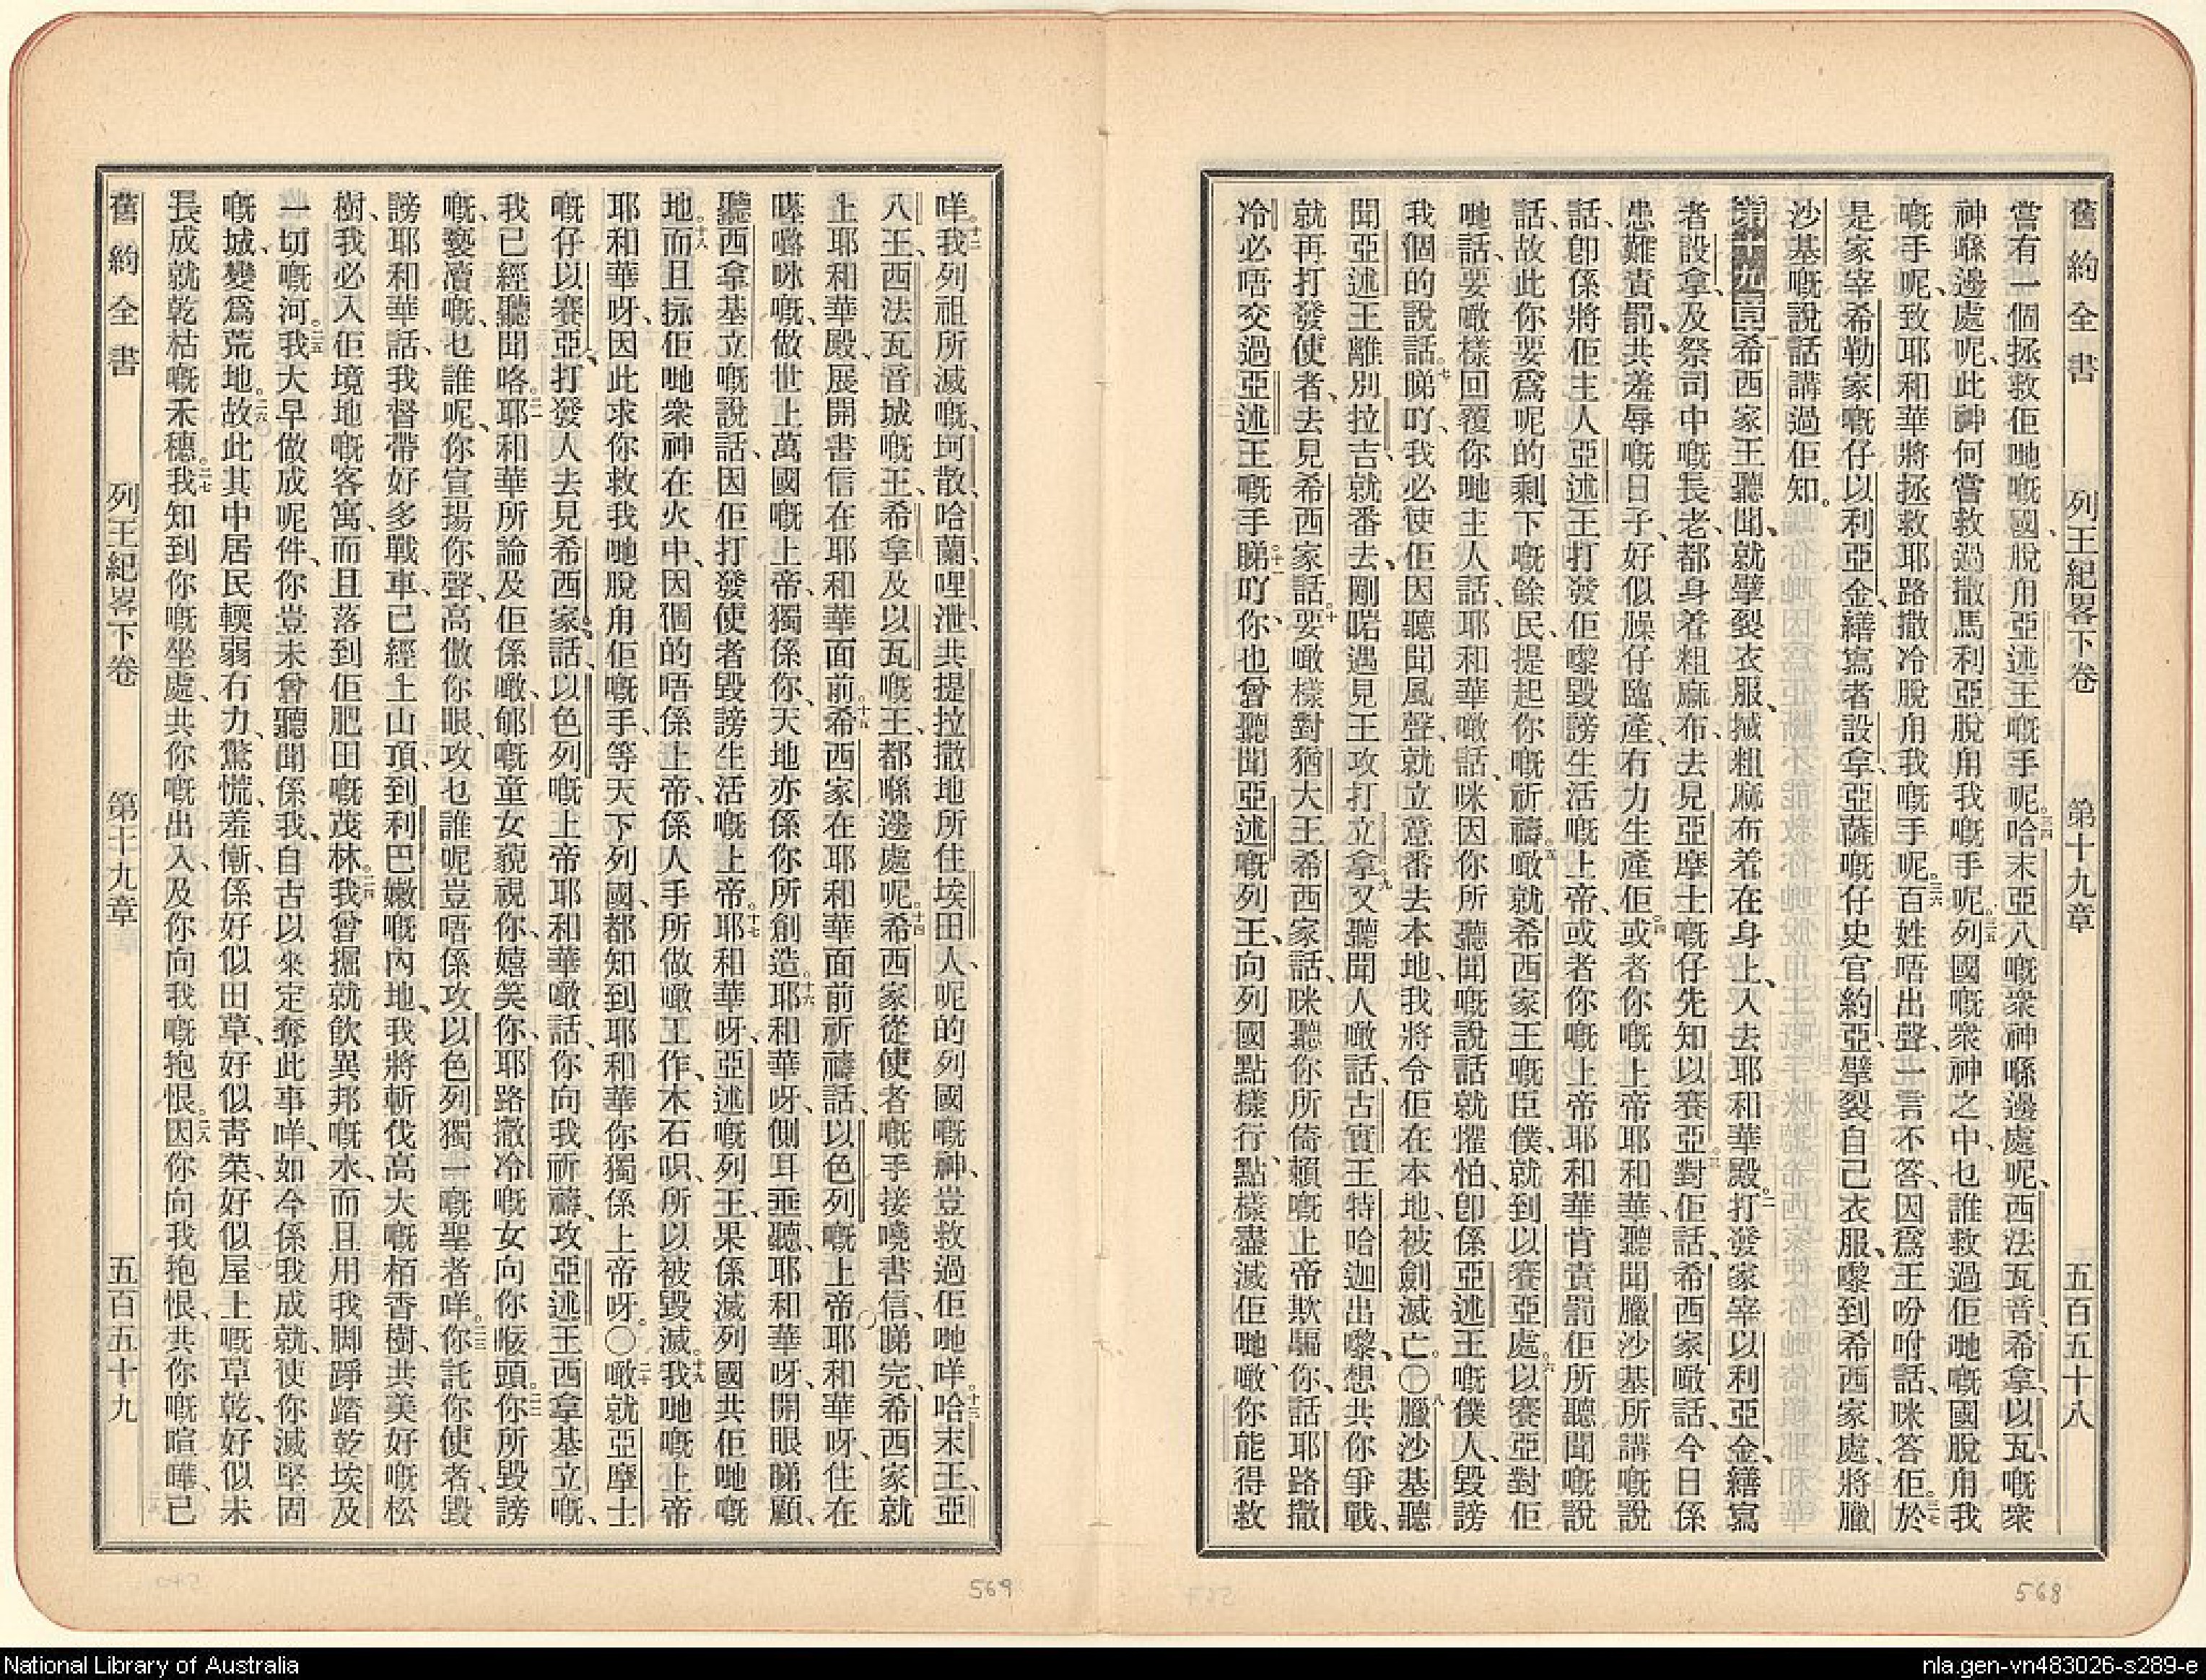 舊約全書 列王紀畧下卷 第十九章 五百五十八
嘗有一個拯救佢哋嘅國、脫甩亞述王嘅手呢。三四哈末亞八嘅衆神喺邊處呢、西法瓦音、希拿、以瓦、嘅衆
神喺邊處呢、此神何嘗救過撒馬利亞脫甩我嘅手呢。三五列國嘅衆神之中、乜誰救過佢哋嘅國脫甩我
嘅手呢、致耶和華將拯救耶路撒冷脫甩我嘅手呢。三六百姓唔出聲、一言不答、因爲王吩咐話、咪答佢。三七於
是家宰希勒家嘅仔以利亞金、繕寫者設拿、亞薩嘅仔史官約亞、擘裂自己衣服、嚟到希西家處、將臘
沙基嘅說話講過佢知。
第十九章一希西家王聽聞、就擘裂衣服、搣粗麻布着在身上、入去耶和華殿。二打發家宰以利亞金、繕寫
者設拿、及祭司中嘅長老、都身着粗麻布、去見亞摩士嘅仔先知以賽亞。三對佢話、希西家噉話、今日係
患難責罰、共羞辱嘅日子、好似臊仔臨產、冇力生產佢。四或者你嘅上帝耶和華、聽聞臘沙基所講嘅說
話、卽係將佢主人亞述王打發佢嚟毀謗生活嘅上帝、或者你嘅上帝耶和華肯責罰佢所聽聞嘅說
話、故此你要爲呢的剩下嘅餘民、提起你嘅祈禱。五噉就希西家王嘅臣僕、就到以賽亞處。六以賽亞對佢
哋話、要噉樣回覆你哋主人話、耶和華噉話、咪因你所聽聞嘅說話就懼怕、卽係亞述王嘅僕人、毀謗
我個的說話。七睇吖、我必使佢因聽聞風聲、就立意番去本地、我將令佢在本地、被劍滅亡。〇八臘沙基聽
聞亞述王離別拉吉、就番去、剛啱遇見王攻打立拿。九又聽聞人噉話、古實王特哈迦出嚟、想共你爭戰、
就再打發使者、去見希西家話。十要噉樣對猶大王希西家話、咪聽你所倚賴嘅上帝欺騙你、話耶路撒
冷必唔交過亞述王嘅手。十一睇吖、你也曾聽聞亞述嘅列王、向列國點樣行、點樣盡滅佢哋、噉你能得救
咩。十二我列祖所滅嘅、坷散、哈蘭、哩泄、共提拉撒地所住埃田人、呢的列國嘅神、豈救過佢哋咩。十三哈末王、亞
八王、西法瓦音城嘅王、希拿及以瓦嘅王、都喺邊處呢。十四希西家從使者嘅手接嘵書信、睇完、希西家就
上耶和華殿、展開書信在耶和華面前。十五希西家在耶和華面前祈禱話、以色列嘅上帝耶和華呀、住在
㗎嚕㕲嘅、做世上萬國嘅上帝、獨係你、天地亦係你所創造。十六耶和華呀、側耳垂聽、耶和華呀、開眼睇顧、
聽西拿基立嘅說話、因佢打發使者毀謗生活嘅上帝。十七耶和華呀、亞述嘅列王、果係滅列國共佢哋嘅
地。十八而且揼佢哋衆神在火中、因個的唔係上帝、係人手所做嘅工作、木石唄、所以被毀滅。十九我哋嘅上帝
耶和華呀、因此求你救我哋脫甩佢嘅手、等天下列國、都知到耶和華你獨係上帝呀。〇二十噉就亞摩士
嘅仔以賽亞、打發人去見希西家話、以色列嘅上帝耶和華噉話、你向我祈禱、攻亞述王西拿基立嘅、
我已經聽聞咯。二一耶和華所論及佢係噉、郇嘅童女藐視你、嬉笑你、耶路撒冷嘅女向你㧡頭。二二你所毀謗
嘅、褻瀆嘅、乜誰呢、你宣揚你聲、高傲你眼、攻乜誰呢、豈唔係攻以色列獨一嘅聖者咩。二三你託你使者、毀
謗耶和華話、我督帶好多戰車、已經上山頂、到利巴嫩嘅內地、我將斬伐高大嘅栢香樹、共美好嘅松
樹、我必入佢境地嘅客寓、而且落到佢肥田嘅茂林。二四我曾掘就飲異邦嘅水、而且用我脚踭踏乾埃及
一切嘅河。二五我大早做成呢件、你豈未曾聽聞係我、自古以來定奪此事咩、如今係我成就、使你滅堅固
嘅城、變爲荒地。二六故此其中居民輭弱冇力、驚慌、羞慚、係好似田草、好似靑菜、好似屋上嘅草乾、好似未
長成就乾枯嘅禾穗。二七我知到你嘅坐處、共你嘅出入、及你向我嘅抱恨。二八因你向我抱恨、共你嘅喧嘩、已
舊約全書 列王紀畧下卷 第十九章 五百五十九
568
569
National Library of Australia
nla.gen-vn483026-s289-e